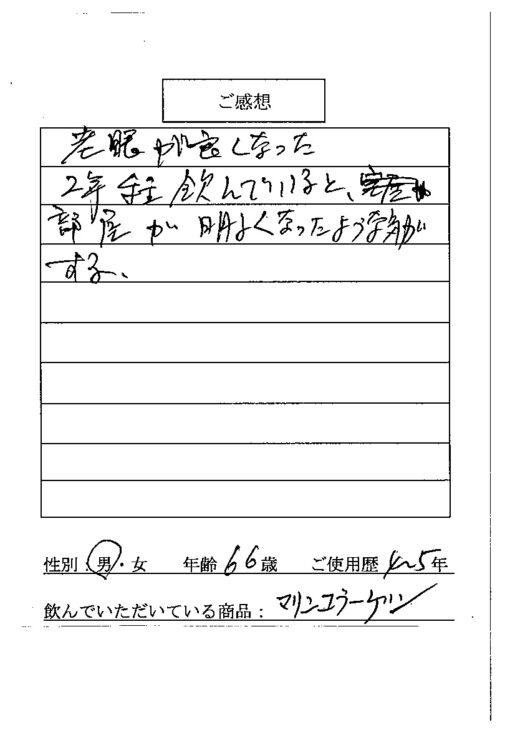 ご感想
老眼が良くなった
2年程飲んでいると、
部屋が明るくなったような気が
する、
性別:男・女 年齢 66歳 ご使用歴 4~5年
飲んでいただいている商品: マリンコラーゲン